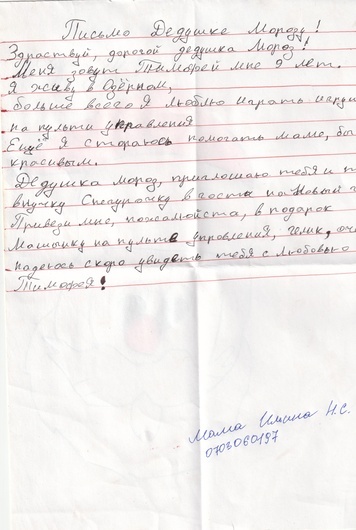 Письмо Дедушке Морозу!
Здраствуй, дорогой дедушка Мороз!
Меня зовут Тимофей мне 9 лет.
Я живу в Озёрном,
больше всего я люблю играть
на пульти управления
Ещё я стораюсь помогать маме,
красивым.
Дедушка мороз, приглошаю тебя и
внучку Снегурочку в гости на Новый
Привези мне, пожамойста, в подарок
Машинку на пульте упровления,
надеюсь скоро увидеть тебя с любовью
Тимофея!
Мама Н.С.
0703060197